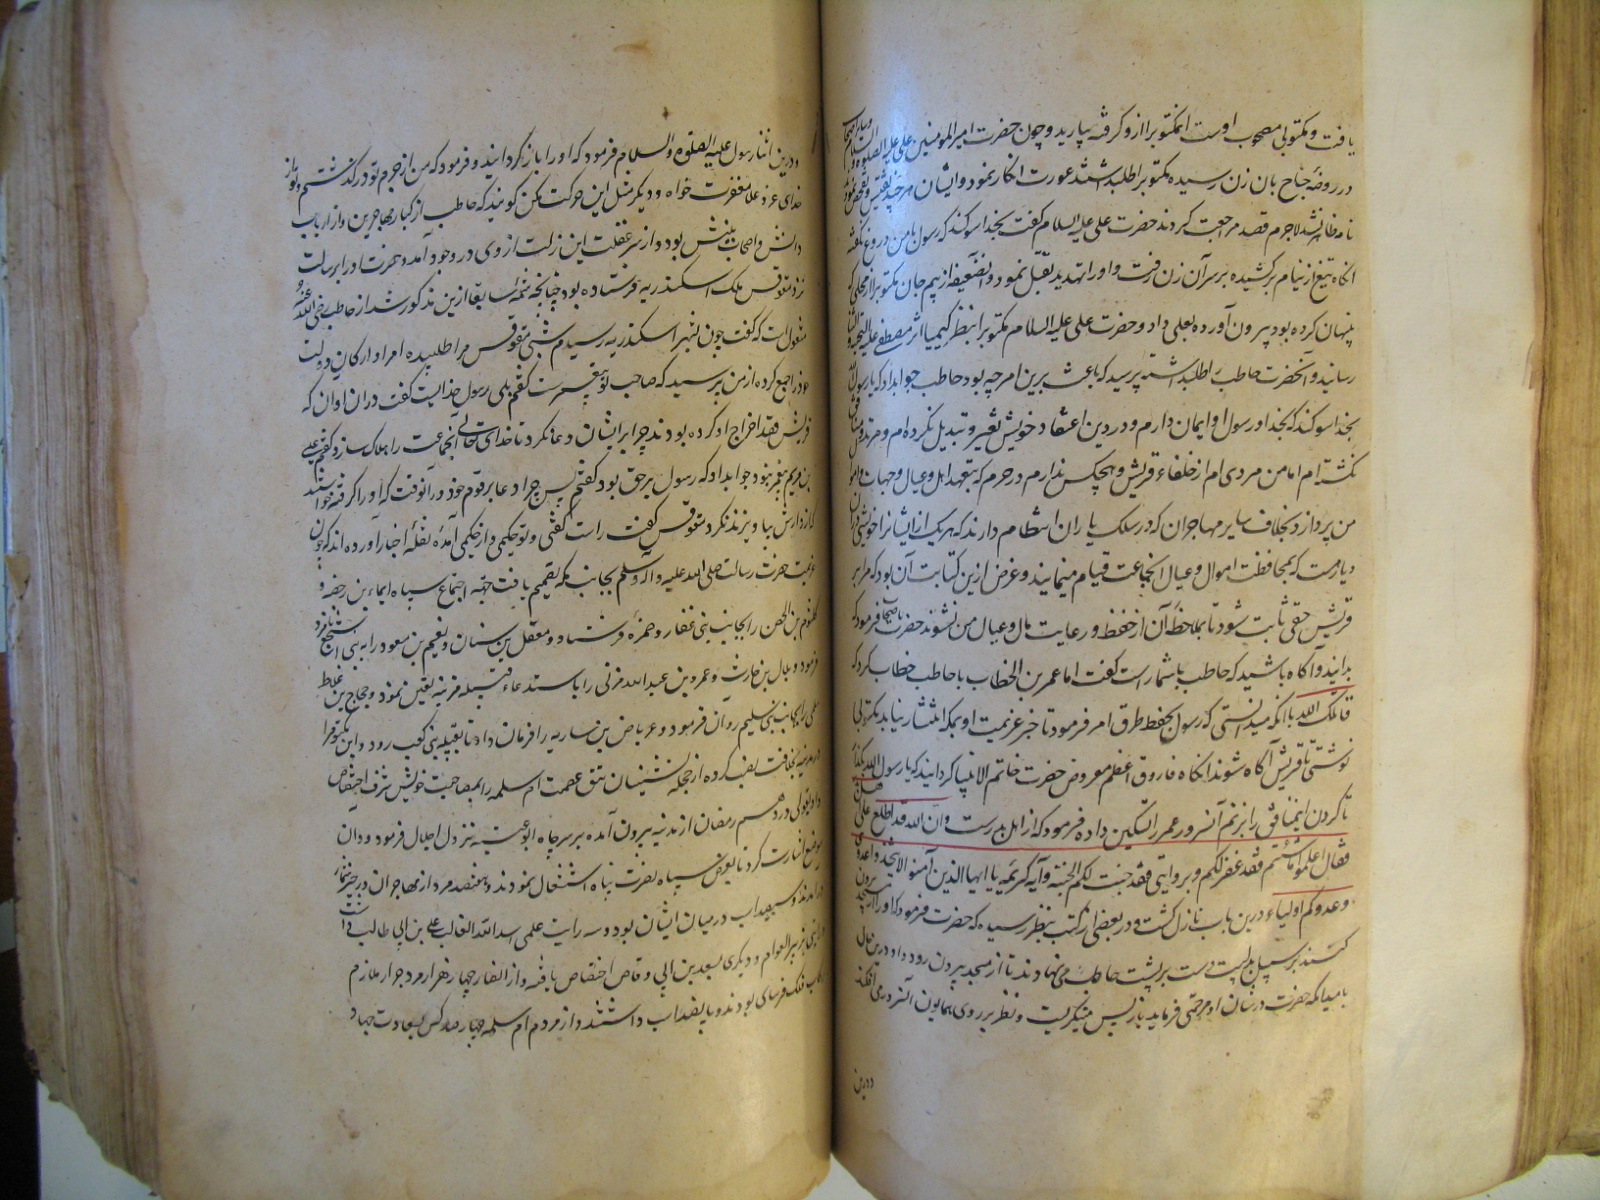 یافت و مکتوبی مصحوب اوست آن مکتوب را ازو گرفته بیارید و چون حضرت امیرالمومنین علی علیه الصلوة والسلام
در روضه خاخ بان زن رسیده مکتوب را طلب داشتند عورت انکار نمود و ایشان هر چند تفتیش و تفحص نمودند
نامه ظاهر نشد لاجرم قصد مراجعت کردند حضرت علی علیه السلام گفت بخدا سوکند که رسول بامن دروغ نگفته
انگاه تیغ از نیام برکشیده بر سر آن زن رفت و او را تهدید بقتل نمود و آن ضعیفه از بیم جان مکتوب را از محلی که
پنهان کرده بود بیرون آورده بعلی داد و حضرت علی علیه السلام مکتوب را بنظر کیمیا اثر مصطفی علیه التحیة
رسانید و آنحضرت حاطب را طلب داشته پرسید که باعث برین امر چه بود حاطب جواب داد که یا رسول الله
بخدا سوکند که بخدا و رسول او ایمان دارم و در دین اعتقاد خویش تغییر و تبدیل نکرده ام و مرتد و منافق
نکشته ام اما من مردی ام از حلفاء قریش و هیچکس ندارم در حرم که بتعهد اهل و عیال و جهات و اموال
من پردازد بخلاف سایر مهاجران که در سلک یاران انتظام دارند که هر یک از ایشانرا خویشی دران
دیارست که بمحافظت اموال و عیال انجماعت قیام مینمایند و غرض ازین کتابت آن بود که مرا بر
قریش حقی ثابت شود تا بملاحظه آن از حفظ و رعایت مال و عیال من نشوند حضرت باصحاب فرمود که
بدانید و آگاه باشید که حاطب با شما راست گفت اما عمر بن الخطاب با حاطب خطاب کرد که
قاتلک الله با آنکه میدانستی که رسول بحفظ طرق امر فرمود تا خبر عزیمت او بمکه انتشار نیابد مکتوبی
نوشتی تا قریش آگاه شوند انگاه فاروق اعظم معروض حضرت خاتم الانبیا کردانید که یا رسول الله بگذار
تا کردن این منافق را بزنم آنسرور عمر را تسکین داده فرمود که از اهل بدرست و ان الله قد اطلع علی
فقال اعملوا ما شئتم فقد غفر لکم و بروایتی فقد وجبت لکم الجنة و آیه کریمه یا ایها الذین آمنوا لا تتخذوا عدوی
وعدوکم اولیاء درین باب نازل کشت و در بعضی از کتب بنظر رسیده که حضرت فرمود که او را از مسجد بیرون
کنند بر سبیل بدلیت دست بر پشت حاطب می نهادند تا از مسجد بیرون رود و او درین حال
بامید آنکه حضرت در شان او مرحمتی فرماید باز پس مینکریست و نظر بر روی همایون آنسرور می افکند
ودرین
ودرین اثنا رسول علیه الصلوة والسلام فرمود که او را باز کردانیدند و فرمود که من از جرم تو در گذشتم و تو از
خدای عز و علا مغفرت خواه و دیگر مثل این حرکت مکن کویند که حاطب از کبار مهاجرین و از ارباب
دانش و اصحاب بینش بود و از سر غفلت این زلت از وی در وجود آمد و حضرت او را برسالت
نزد مقوقس ملک اسکندریه فرستاده بود چنانچه شمه سابقا ازین مذکور شد از حاطب رضی الله عنه
منقول است که گفت چون بشهر اسکندریه رسیدم شبی مقوقس مرا طلبیده امرا و ارکان دولت
خود را جمع کرده از من پرسید که صاحب تو پیغمبرست گفتم بلی رسول خدایست گفت دران اوان که
قریش قصد اخراج او کرده بودند چرا بر ایشان دعا نکرد تا خدای تعالی آنجماعت را هلاک سازد گفتم عیسی
بن مریم پیغمبر بنود جواب داد که رسول بر حق بود گفتم پس چرا دعا بر قوم خود در آنوقت که او را گرفته خواستند
که از دارش بیاویزند نکرد مقوقس گفت راست گفتی و تو حکیمی و از حکیمی آمدهٔ نقلهٔ اخبار آورده اند که چون
عزیمت حضرت رسالت صلی الله علیه و آله وسلم بجانب مکه تصمیم یافت جهة اجتماع سپاه ایماء بن رحضه و
کلثوم بن الحصن را بجانب بنی غفار و ضمره فرستاد و معقل بن سنان و نعیم بن مسعود را به بنی اشجع نامزد
فرمود و بلال بن حارث و عمرو بن عبد الله مزنی را باستدعاء قبیله مزینه تعیین نمود و حجاج بن علاط
سلمی را بجانب بنی سلیم روان فرمود و عرباض بن ساریه را فرمان داد تا بقبیله بنی کعب رود و ابن ام مکتوم را
در مدینه بخلافت نصب کرده از جمله نشینان تتق عصمت ام سلمه را بمصاحبت خویش شرف اختصاص
داد و بقولی در دهم رمضان از مدینه بیرون آمده بر سر چاه ابو عتبه نزول اجلال فرمود و دران
موضع اشارت کرد تا بعرض سپاه نصرت پناه اشتغال نمودند و هفتصد مرد از مهاجران در حیز شمار
درآمدند و سیصد اسب در میان ایشان بود و سه رایت علمی اسد الله الغالب علی بن ابی طالب داشت
و رایتی زبیر العوام و دیگری بسعد بن ابی وقاص اختصاص یافته و از انصار چهار هزار مرد جرار ملازم
رکاب فلک فرسای بودند و پانصد اسب داشتند و از مردم ام سلمه چهارصد کس بسعادت جهاد